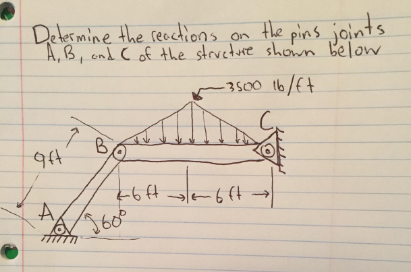 Determine the reactions on the pins joints
A, B, and C of the structure shown below
3500 lb/ft
C
B
9ft
6 ft 6 ft
A
60°